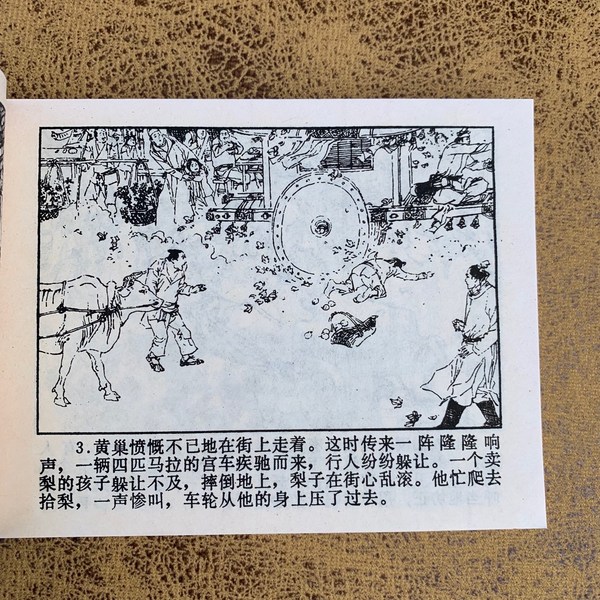 3.黄巢愤慨不已地在街上走着。这时传来一阵隆隆响
声，一辆四匹马拉的宫车疾驰而来，行人纷纷躲让。一个卖
梨的孩子躲让不及，摔倒地上，梨子在街心乱滚。他忙爬去
拾梨，一声惨叫，车轮从他的身上压了过去。